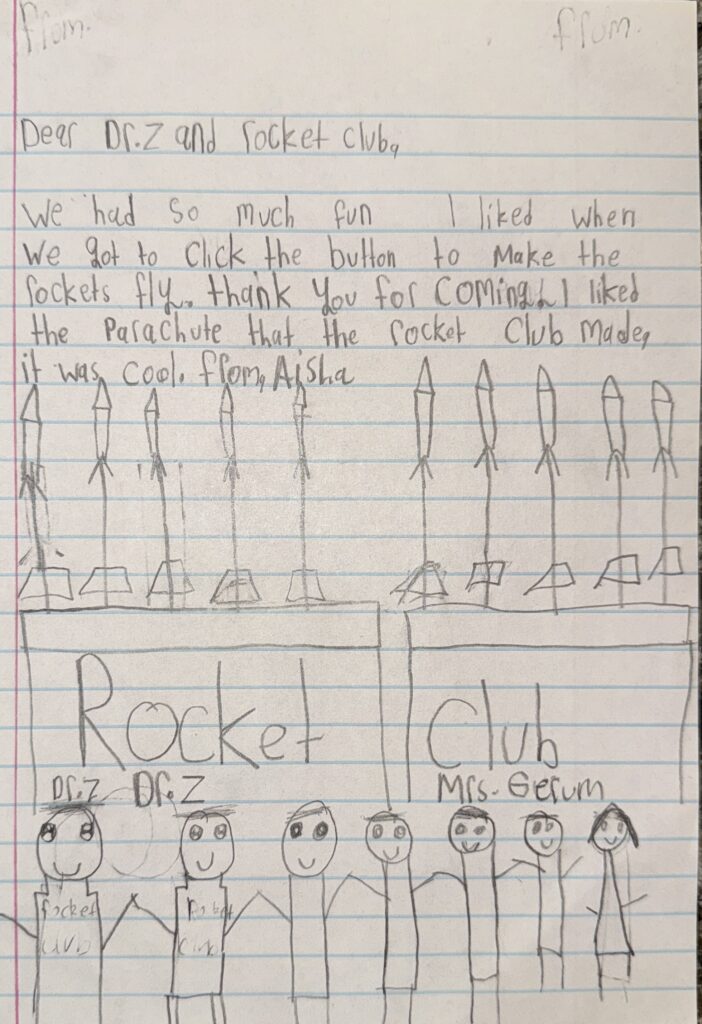 From.
From.
Dear Dr.Z and rocket club,
We had so much fun I liked when
We got to click the button to make the
rockets fly. thank you for coming. I liked
the Parachute that the rocket Club made,
it was cool. from, Aisha
Rocket Club
Dr.Z Dr.Z Mrs. Gerum
rocket club
Rocket club